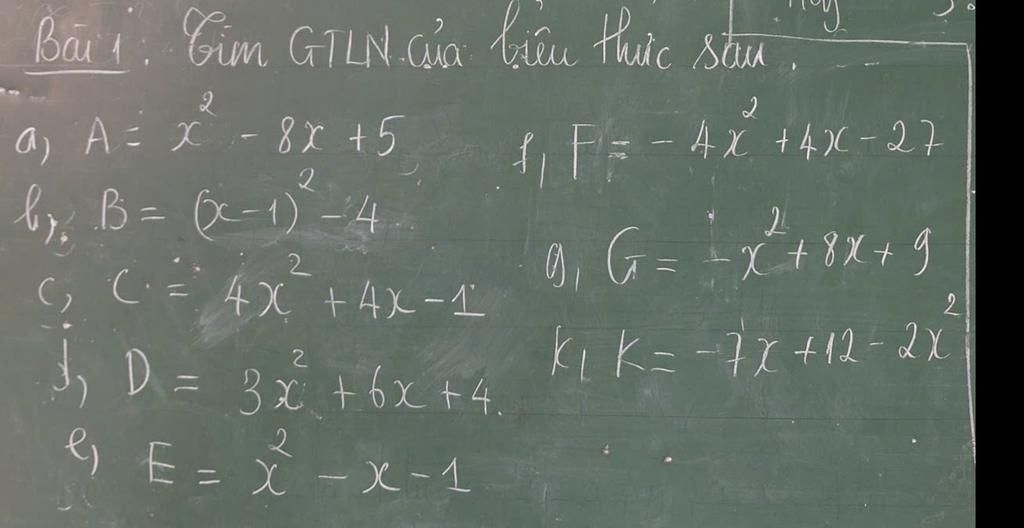 Bài 1: Tìm GTLN của biểu thức sau.
a, A = x² - 8x + 5
b, B = (x-1)² - 4
c, C = 4x² + 4x - 1
d, D = 3x² + 6x + 4.
e, E = x² - x - 1
f, F = - 4x² + 4x - 27
g, G = - x² + 8x + 9
k, K = -7x + 12 - 2x²